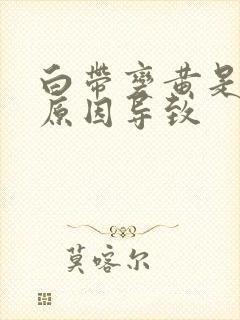 白带变黄是
原因导致
莫喀尔